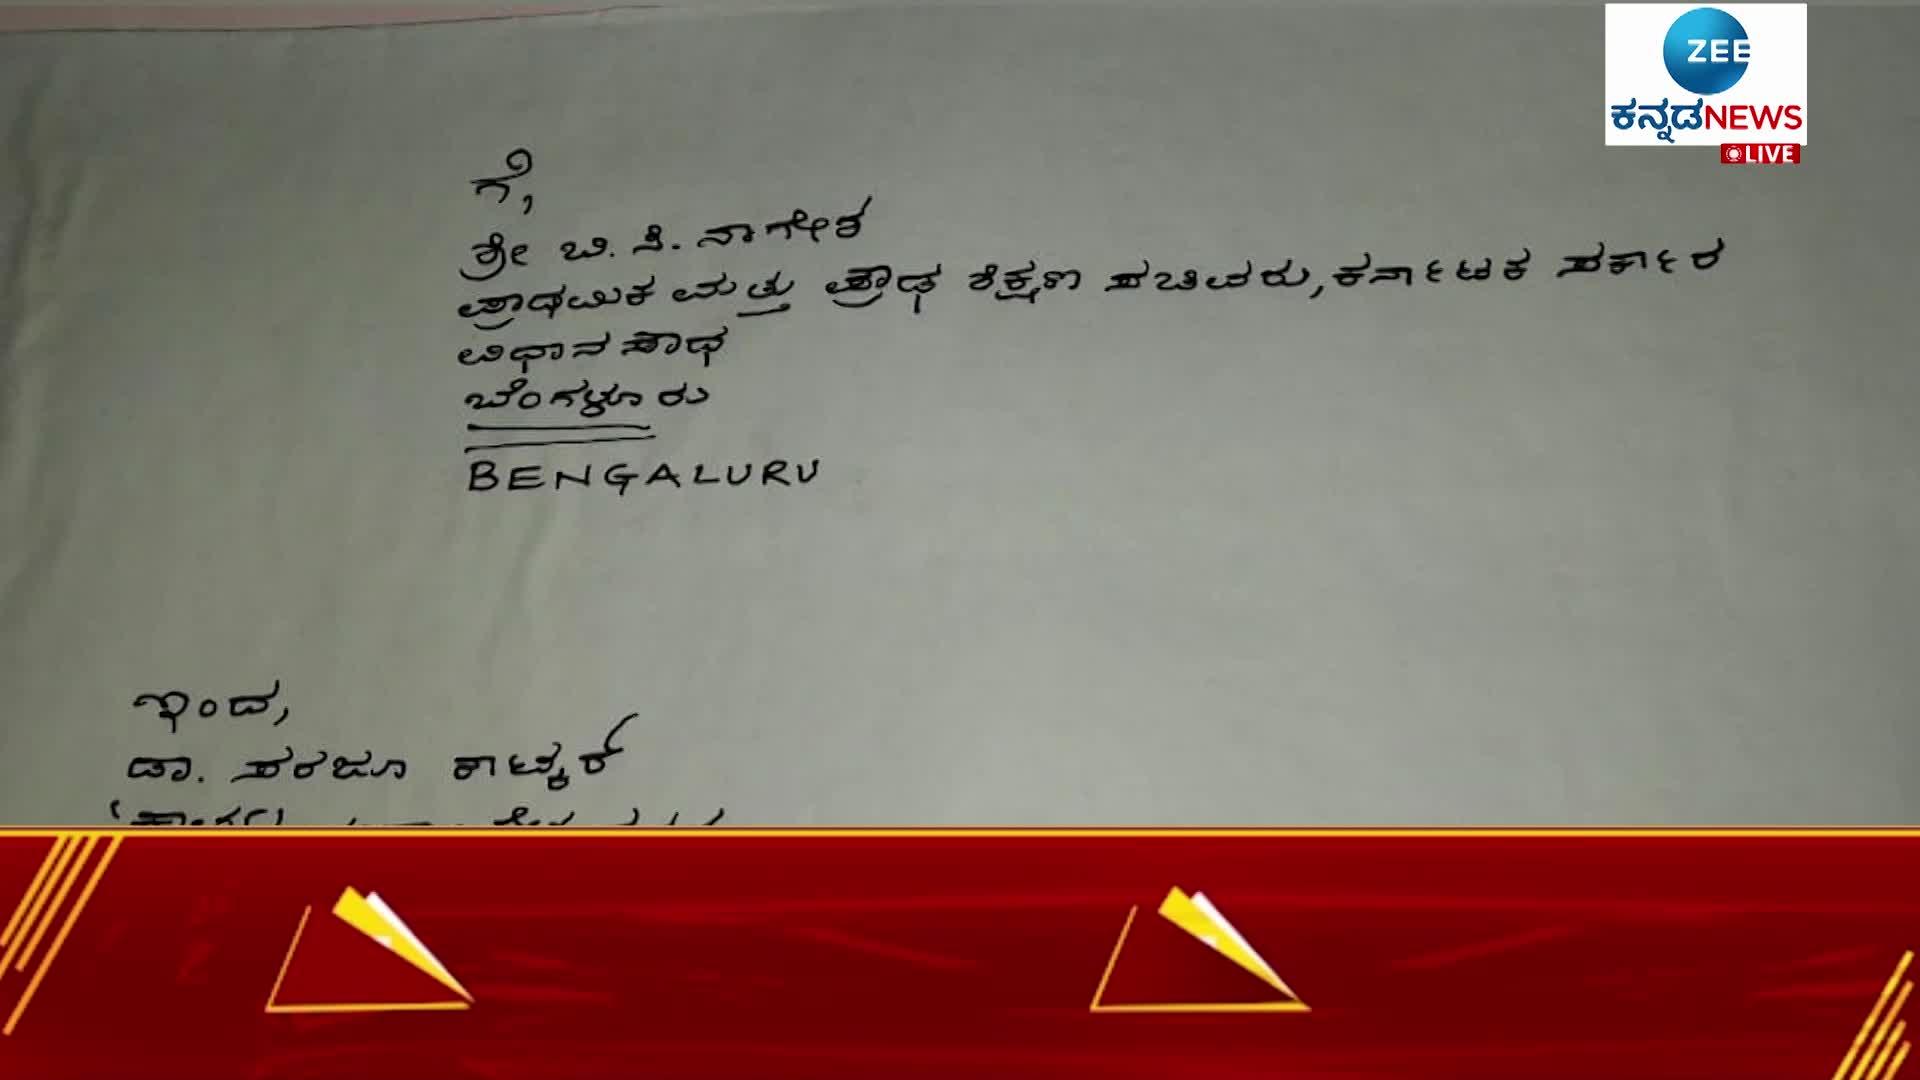 ZEE
ಕನ್ನಡNEWS
LIVE
ಗೆ,
ಶ್ರೀ ಬಿ. ಸಿ. ನಾಗೇಶ
ಪ್ರಾಥಮಿಕ ಮತ್ತು ಪ್ರೌಢ ಶಿಕ್ಷಣ ಸಚಿವರು, ಕರ್ನಾಟಕ ಸರ್ಕಾರ
ವಿಧಾನ ಸೌಧ
ಬೆಂಗಳೂರು
BENGALURU
ಇಂದ,
ಡಾ. ಸರಜೂ ಕಾಟ್ಕರ್